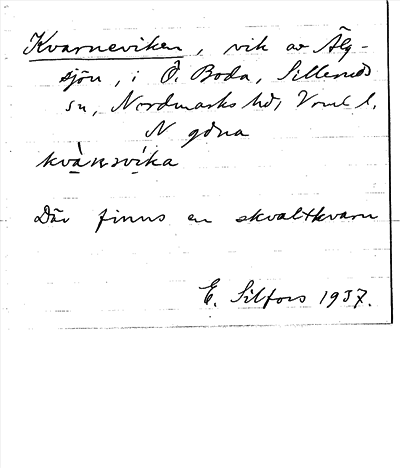 Kvarneviken, vik av Älg-
sjön, i Ö. Boda, Silleruds
sn, Nordmarks hd, Vrml l.
N gdna
kvànsvíka
Där finns en skvaltkvarn
E. Silfors 1937.